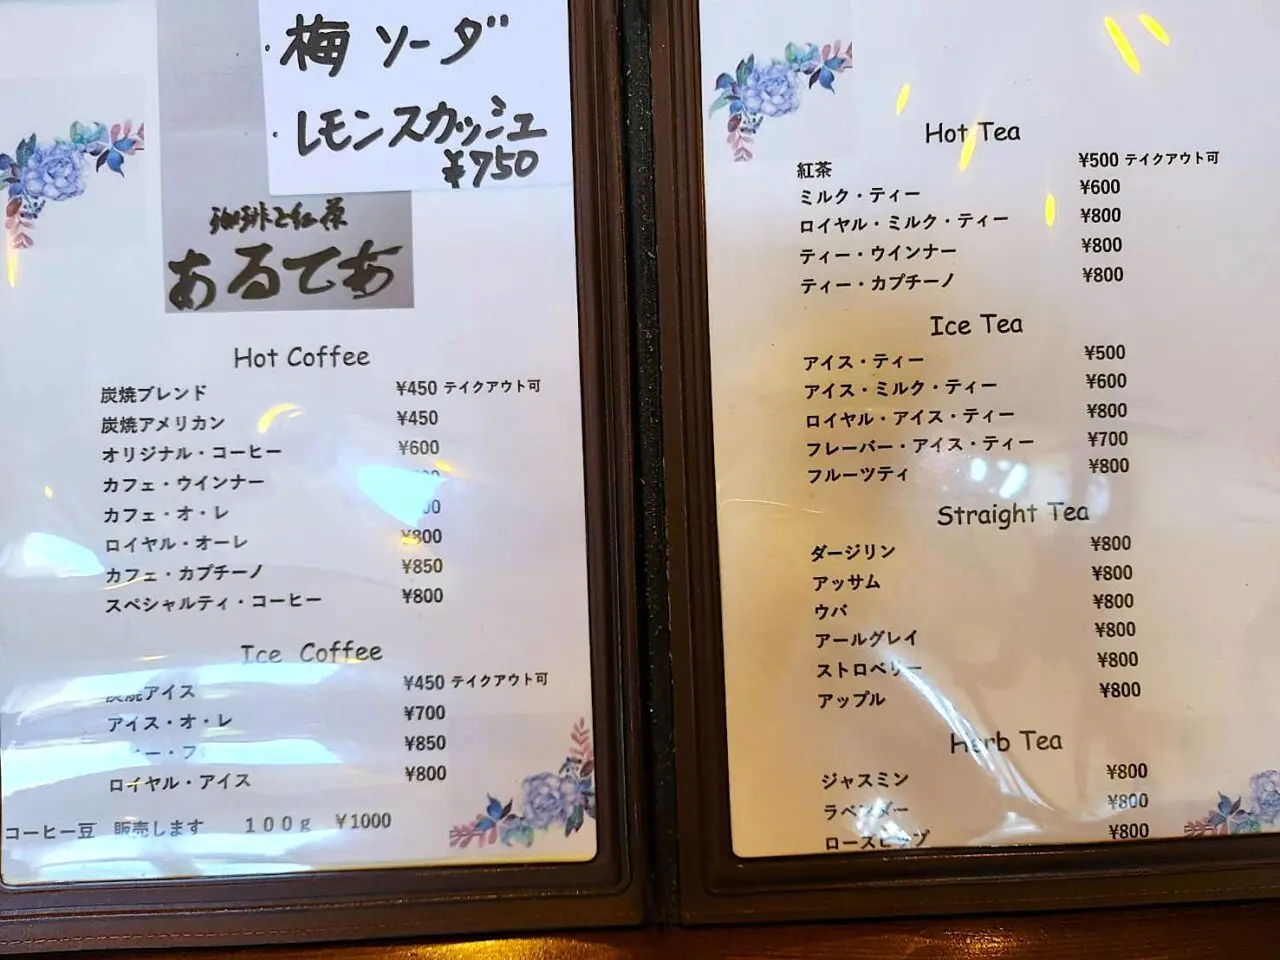 ・梅ソーダ
・レモンスカッシュ
¥750
珈琲と紅茶
あるてあ
Hot Coffee
炭焼ブレンド ¥450 テイクアウト可
炭焼アメリカン ¥450
オリジナル・コーヒー ¥600
カフェ・ウインナー
カフェ・オ・レ
ロイヤル・オーレ ¥800
カフェ・カプチーノ ¥850
スペシャルティ・コーヒー ¥800
Ice Coffee
炭焼アイス ¥450 テイクアウト可
アイス・オ・レ ¥700
¥850
ロイヤル・アイス ¥800
コーヒー豆 販売します 100g ¥1000
Hot Tea
紅茶 ¥500 テイクアウト可
ミルク・ティー ¥600
ロイヤル・ミルク・ティー ¥800
ティー・ウインナー ¥800
ティー・カプチーノ ¥800
Ice Tea
アイス・ティー ¥500
アイス・ミルク・ティー ¥600
ロイヤル・アイス・ティー ¥800
フレーバー・アイス・ティー ¥700
フルーツティ ¥800
Straight Tea
ダージリン ¥800
アッサム ¥800
ウバ ¥800
アールグレイ ¥800
ストロベリー ¥800
アップル ¥800
Herb Tea
ジャスミン ¥800
ラベンダー ¥800
ローズヒップ ¥800